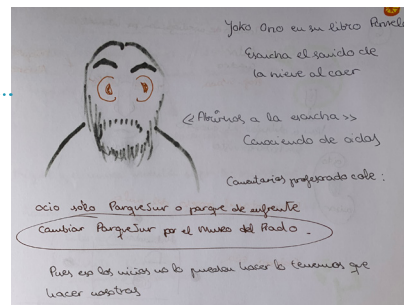 Yoko Ono en su libro
Escucha el sonido de
la nieve al caer
<<Abrirnos a la escucha>>
Conociendo de oídos
Comentarios profesorado cole:
ocio solo ParqueSur o parque de enfrente
Cambiar ParqueSur por el Museo del Prado.
Pues eso los no lo pueden hacer lo tenemos que
hacer nosotras